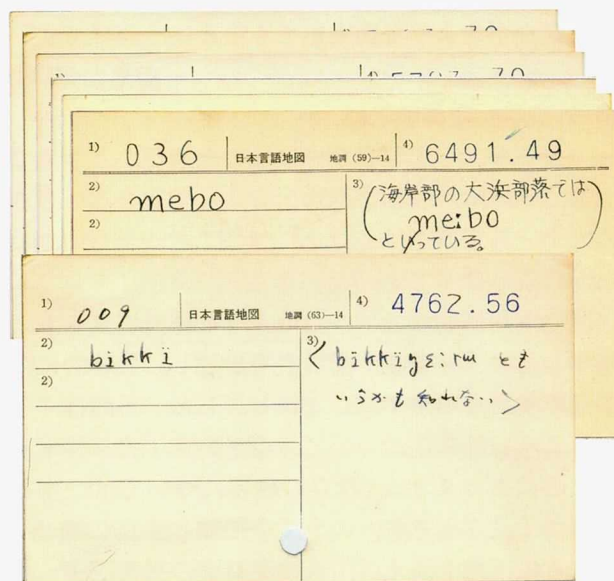 1) 036 日本言語地図 地調 (59)—14 4) 6491.49
2) mebo
3) (海岸部の大浜部落では
meːbo
といっている。)
2)
1) 009 日本言語地図 地調 (63)—14 4) 4762.56
2) bïkkï
3) 〈bïkkïgɛːrɯ とも
いうかも知れない〉
2)